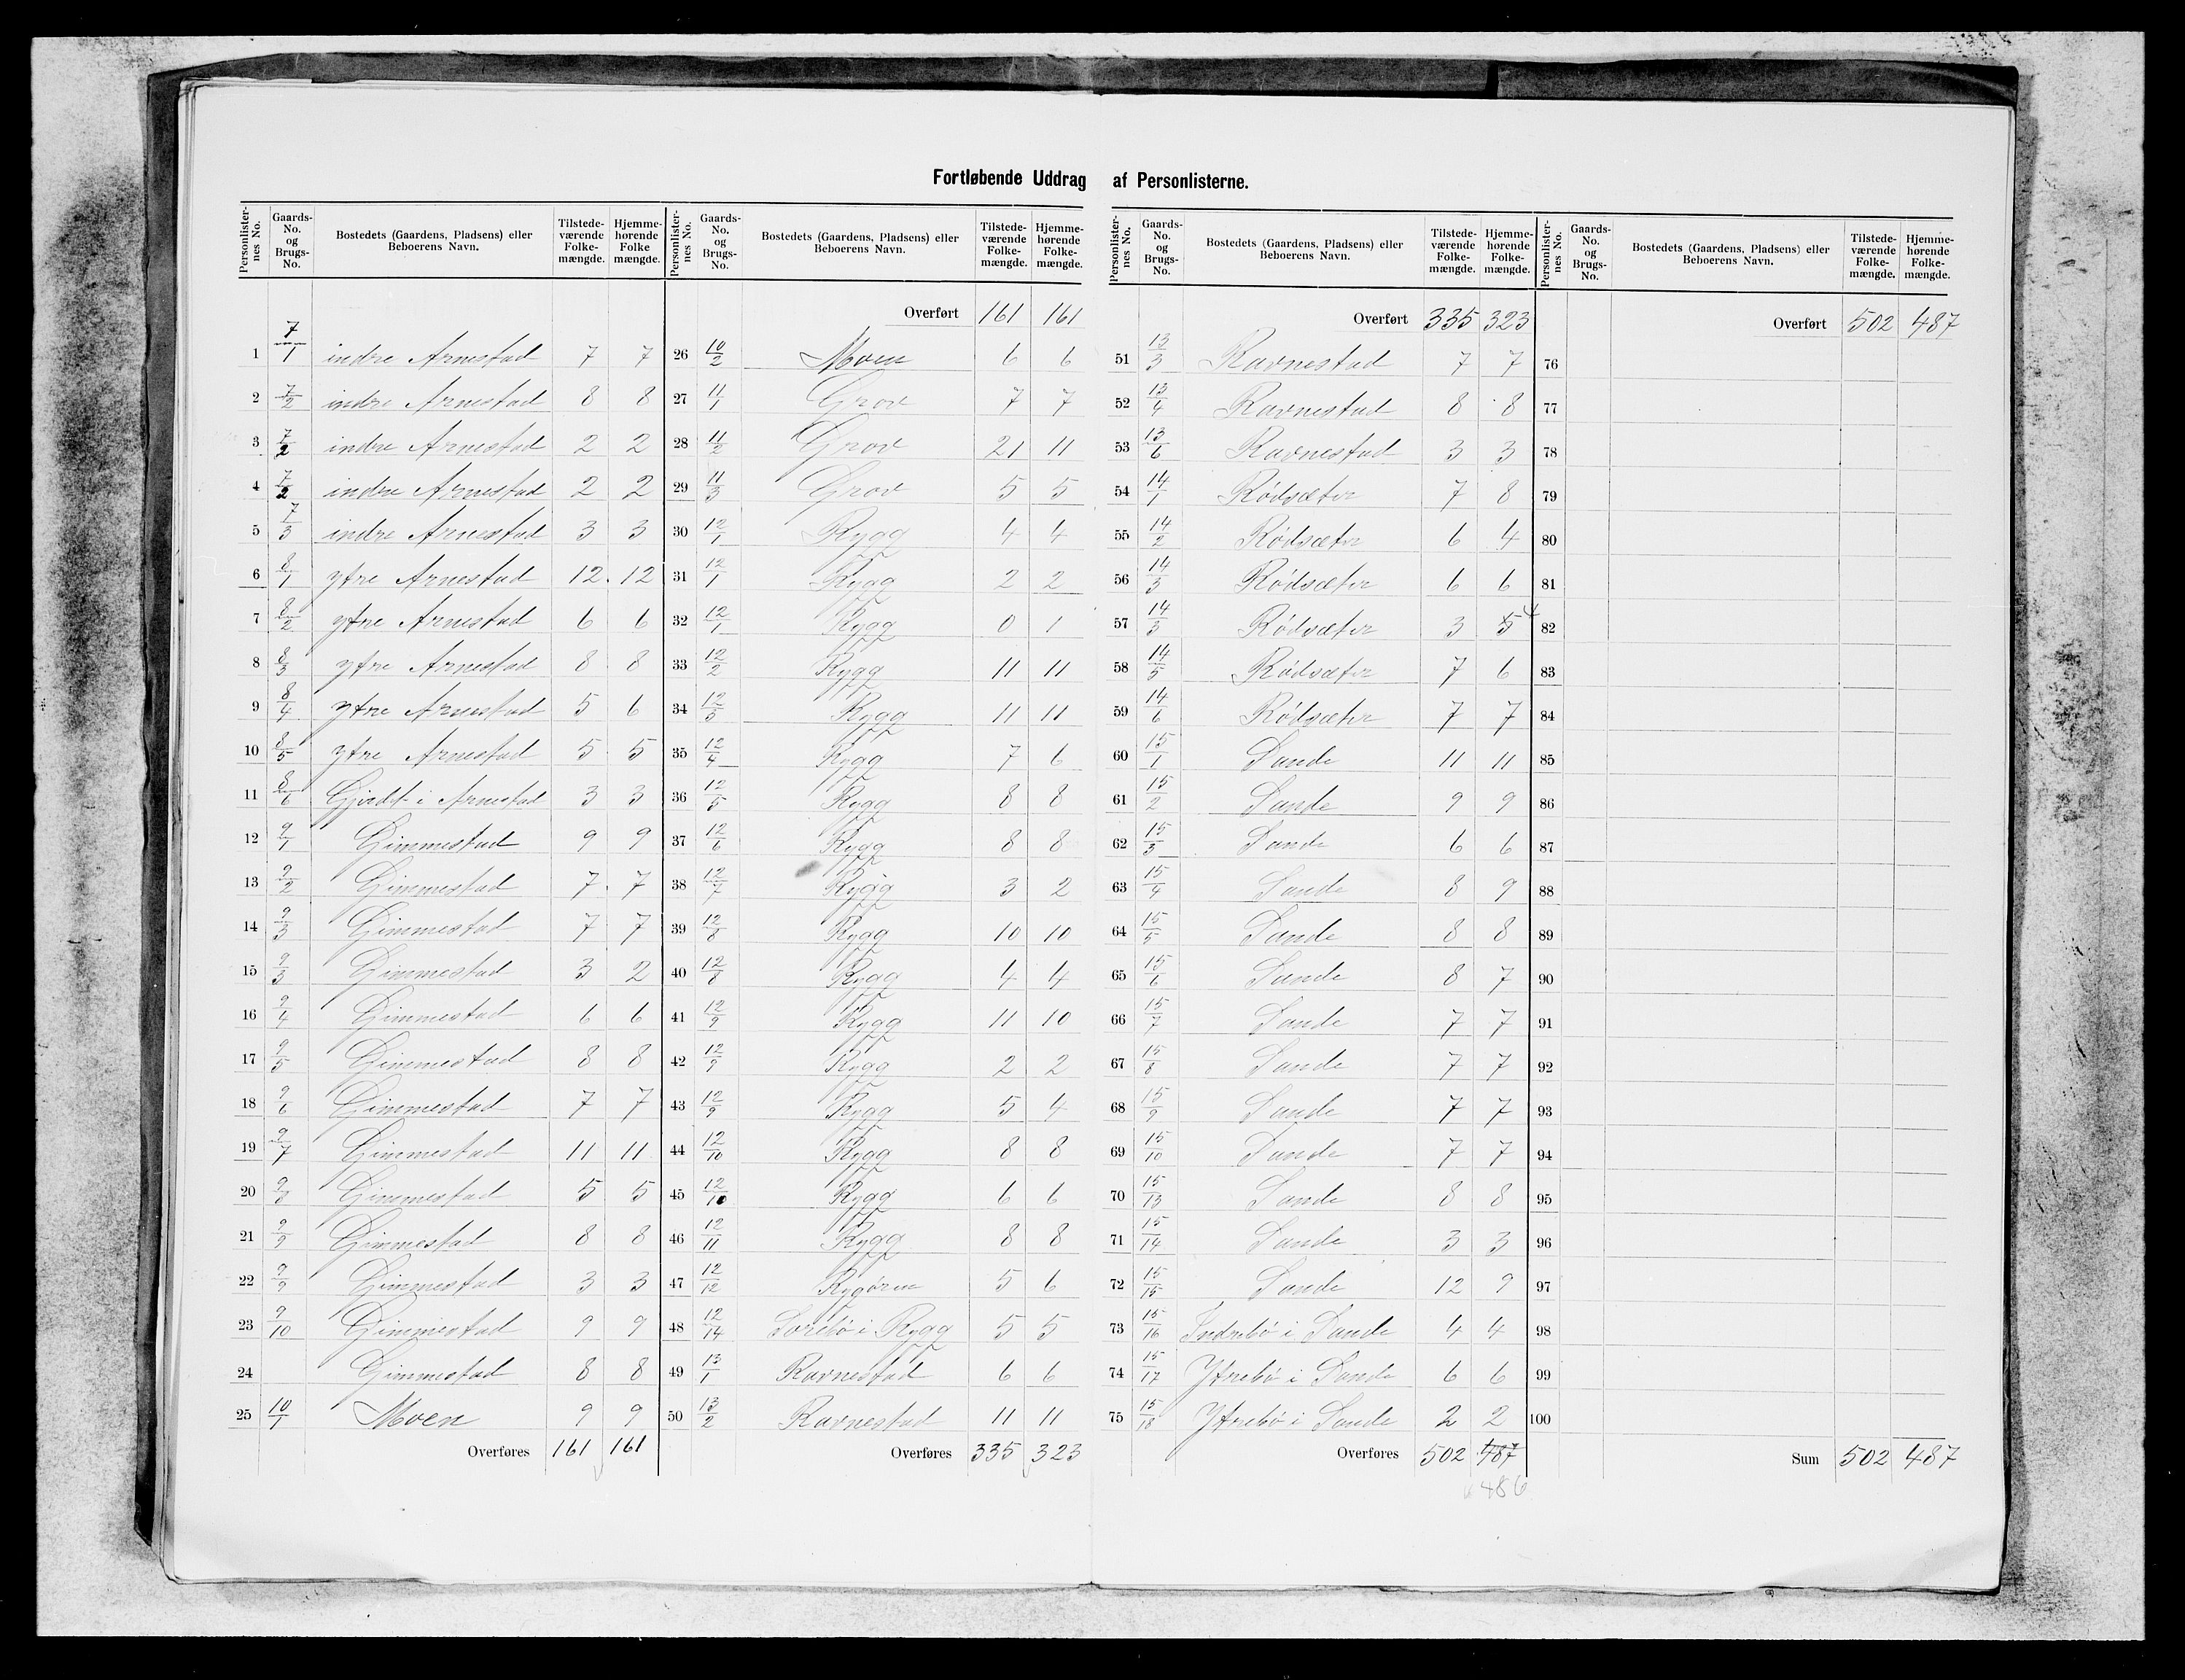 Fortløbende Uddrag af Personlisterne.
Personlisternes No. | Gaards-No. og Brugs-No. | Bostedets (Gaardens, Pladsens) eller Beboerens Navn. | Tilstedeværende Folkemængde. | Hjemmehørende Folkemængde.
1 7/1 indre Arnestad 7 7
2 7/2 indre Arnestad 8 8
3 7/2 indre Arnestad 2 2
4 7/2 indre Arnestad 2 2
5 7/3 indre Arnestad 3 3
6 8/1 ytre Arnestad 12 12
7 8/2 ytre Arnestad 6 6
8 8/3 ytre Arnestad 8 8
9 8/4 ytre Arnestad 5 6
10 8/5 ytre Arnestad 5 5
11 8/6 i Arnestad 3 3
12 9/1 Gimmestad 9 9
13 9/2 Gimmestad 7 7
14 9/3 Gimmestad 7 7
15 9/3 Gimmestad 3 2
16 9/4 Gimmestad 6 6
17 9/5 Gimmestad 8 8
18 9/6 Gimmestad 7 7
19 9/7 Gimmestad 11 11
20 9/8 Gimmestad 5 5
21 9/9 Gimmestad 8 8
22 9/9 Gimmestad 3 3
23 9/10 Gimmestad 9 9
24 Gimmestad 8 8
25 10/1 Moen 9 9
Overføres 161 161
Personlisternes No. | Gaards-No. og Brugs-No. | Bostedets (Gaardens, Pladsens) eller Beboerens Navn. | Tilstedeværende Folkemængde. | Hjemmehørende Folkemængde.
Overført 161 161
26 10/2 Moen 6 6
27 11/1 Grov 7 7
28 11/2 Grov 21 11
29 11/3 Grov 5 5
30 12/1 Rygg 4 4
31 12/1 Rygg 2 2
32 12/1 Rygg 0 1
33 12/2 Rygg 11 11
34 12/3 Rygg 11 11
35 12/4 Rygg 7 6
36 12/5 Rygg 8 8
37 12/6 Rygg 8 8
38 12/7 Rygg 3 2
39 12/8 Rygg 10 10
40 12/8 Rygg 4 4
41 12/9 Rygg 11 10
42 12/9 Rygg 2 2
43 12/9 Rygg 5 4
44 12/10 Rygg 8 8
45 12/10 Rygg 6 6
46 12/11 Rygg 8 8
47 12/12 Rygören 5 6
48 12/14 Sorebö i Rygg 5 5
49 13/1 Ravnestad 6 6
50 13/2 Ravnestad 11 11
Overføres 335 323
Personlisternes No. | Gaards-No. og Brugs-No. | Bostedets (Gaardens, Pladsens) eller Beboerens Navn. | Tilstedeværende Folkemængde. | Hjemmehørende Folkemængde.
Overført 335 323
51 13/3 Ravnestad 7 7
52 13/4 Ravnestad 8 8
53 13/6 Ravnestad 3 3
54 14/1 Rödsæter 7 8
55 14/2 Rödsæter 6 4
56 14/3 Rödsæter 6 6
57 14/3 Rödsæter 3 5 4
58 14/5 Rödsæter 7 6
59 14/6 Rödsæter 7 7
60 15/1 Sande 11 11
61 15/2 Sande 9 9
62 15/3 Sande 6 6
63 15/4 Sande 8 9
64 15/5 Sande 8 8
65 15/6 Sande 8 7
66 15/7 Sande 7 7
67 15/8 Sande 7 7
68 15/9 Sande 7 7
69 15/10 Sande 7 7
70 15/13 Sande 8 8
71 15/14 Sande 3 3
72 15/15 Sande 12 9
73 15/16 Indrebö i Sande 4 4
74 15/17 Ytrebö i Sande 6 6
75 15/18 Ytrebö i Sande 2 2
Overføres 502 487
486
Personlisternes No. | Gaards-No. og Brugs-No. | Bostedets (Gaardens, Pladsens) eller Beboerens Navn. | Tilstedeværende Folkemængde. | Hjemmehørende Folkemængde.
Overført 502 487
76
77
78
79
80
81
82
83
84
85
86
87
88
89
90
91
92
93
94
95
96
97
98
99
100
Sum 502 487